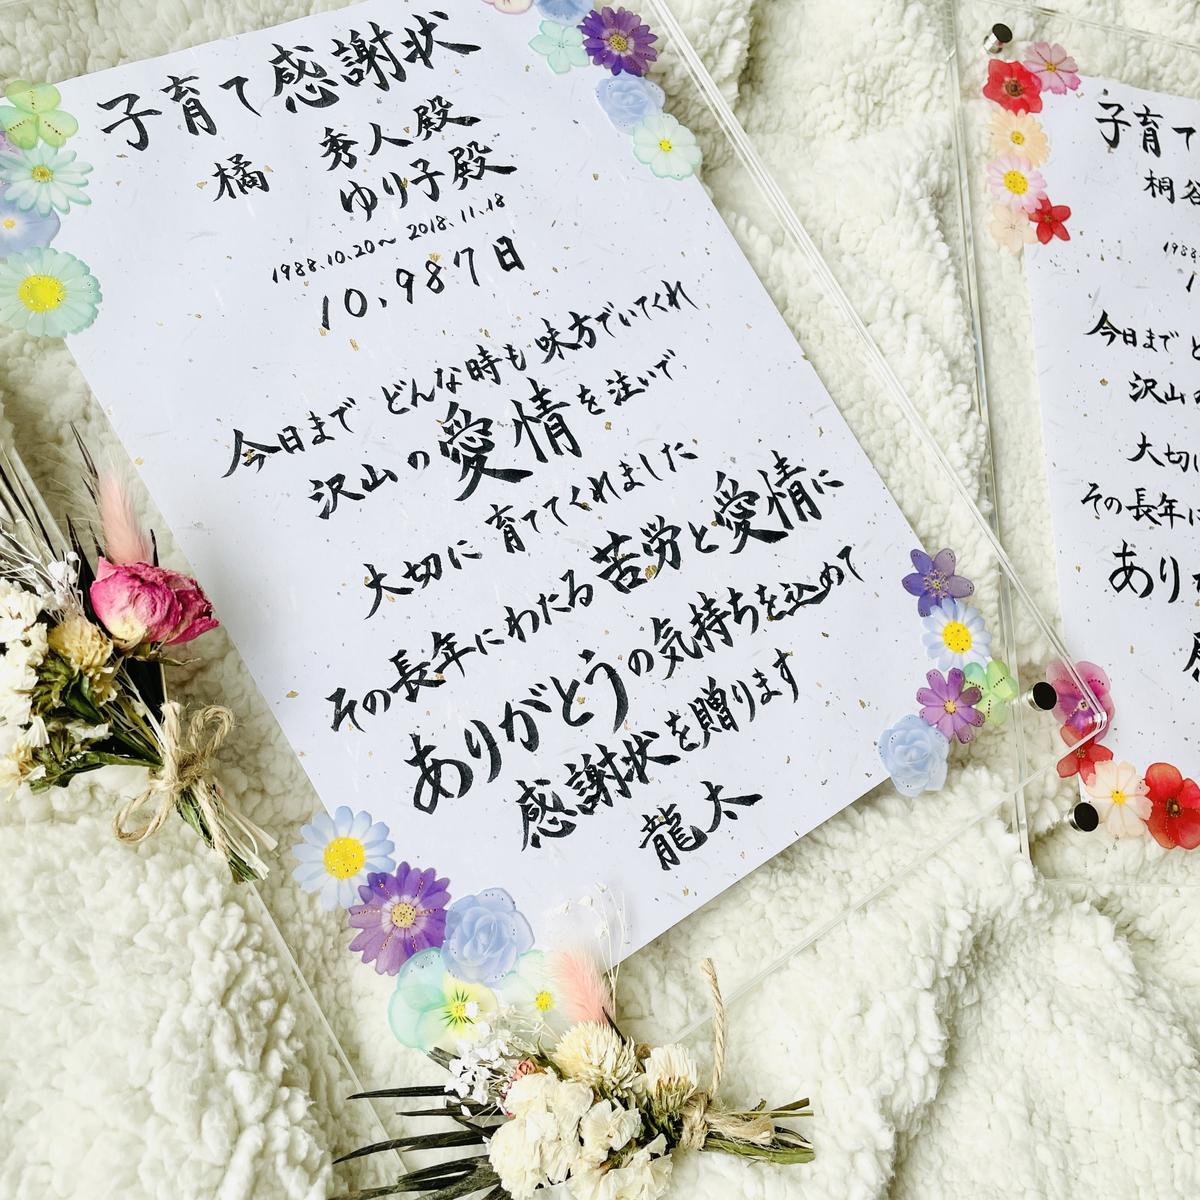 子育て感謝状
橘 秀人殿
ゆり子殿
1988.10.20〜 2018.11.18
10,987日
今日まで どんな時も 味方でいてくれ
沢山の愛情を注いで
大切に 育ててくれました
その長年にわたる苦労と愛情に
ありがとうの気持ちを込めて
感謝状を贈ります
龍太
子育て
桐谷
1988
1
今日まで ど
沢山の
大切に
その長年に
あり